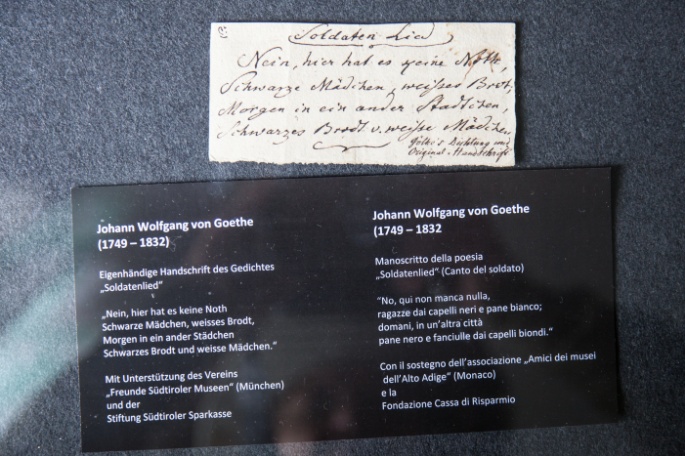 Soldaten Lied
Nein, hier hat es keine Noth,
Schwarze Mädchen, weisses Brot,
Morgen in ein ander Städtchen,
Schwarzes Brodt u. weisse Mädchen
Göthe's Dichtung und
Original-Handschrift
Johann Wolfgang von Goethe
(1749 – 1832)
Eigenhändige Handschrift des Gedichtes
„Soldatenlied“
„Nein, hier hat es keine Noth
Schwarze Mädchen, weisses Brodt,
Morgen in ein ander Städchen
Schwarzes Brodt und weisse Mädchen.“
Mit Unterstützung des Vereins
„Freunde Südtiroler Museen“ (München)
und der
Stiftung Südtiroler Sparkasse
Johann Wolfgang von Goethe
(1749 – 1832
Manoscritto della poesia
„Soldatenlied“ (Canto del soldato)
“No, qui non manca nulla,
ragazze dai capelli neri e pane bianco;
domani, in un’altra città
pane nero e fanciulle dai capelli biondi.“
Con il sostegno dell’associazione „Amici dei musei
dell’Alto Adige“ (Monaco)
e la
Fondazione Cassa di Risparmio